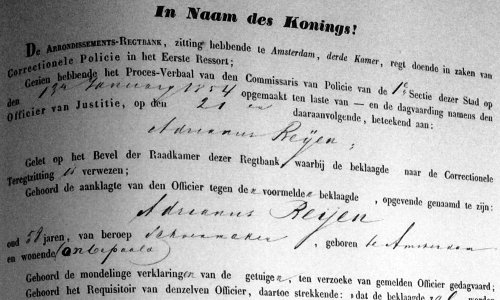 In Naam des Konings!
De Arrondissements-Regtbank, zitting hebbende te Amsterdam, derde Kamer, regt doende in zaken van
Correctionele Policie in het Eerste Ressort;
Gezien hebbende het Proces-Verbaal van den Commissaris van Policie van de 1e Sectie dezer Stad op
den 13n Januarij 1854 opgemaakt ten laste van — en de dagvaarding namens den
Officier van Justitie, op den 21 en daaraanvolgende, beteekend aan:
Adrianus Reijen;
Gelet op het Bevel der Raadkamer dezer Regtbank, waarbij de beklaagde naar de Correctionele
Teregtzitting is verwezen;
Gehoord de aanklagte van den Officier tegen den voormelden beklaagde, opgevende genaamd te zijn:
Adrianus Reijen
oud 58 jaren, van beroep Schoenmaker, geboren te Amsterdam
en wonende onbepaald
Gehoord de mondelinge verklaringen van de getuigen, ten verzoeke van gemelden Officier gedagvaard;
Gehoord het Requisitoir van denzelven Officier, daartoe strekkende: dat de beklaagde